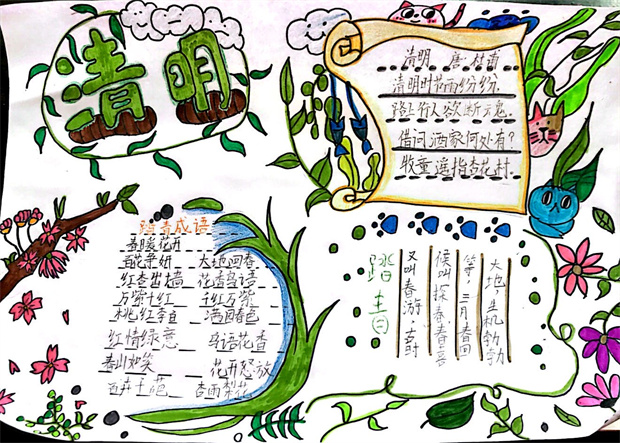 清明
清明 唐.杜甫
清明时节雨纷纷.
路上行人欲断魂,
借问酒家何处有?
牧童遥指杏花村.
踏青成语
春暖花开
百花争妍 大地回春
红杏出墙 花香
万紫千红 千红万紫
桃红李白 满园春色
红情绿意 鸟语花香
春山如笑 花开怒放
百卉千葩 杏雨梨花
踏青
又叫春游、古时
候叫探春、寻春
等,三月春回
大地,生机勃勃